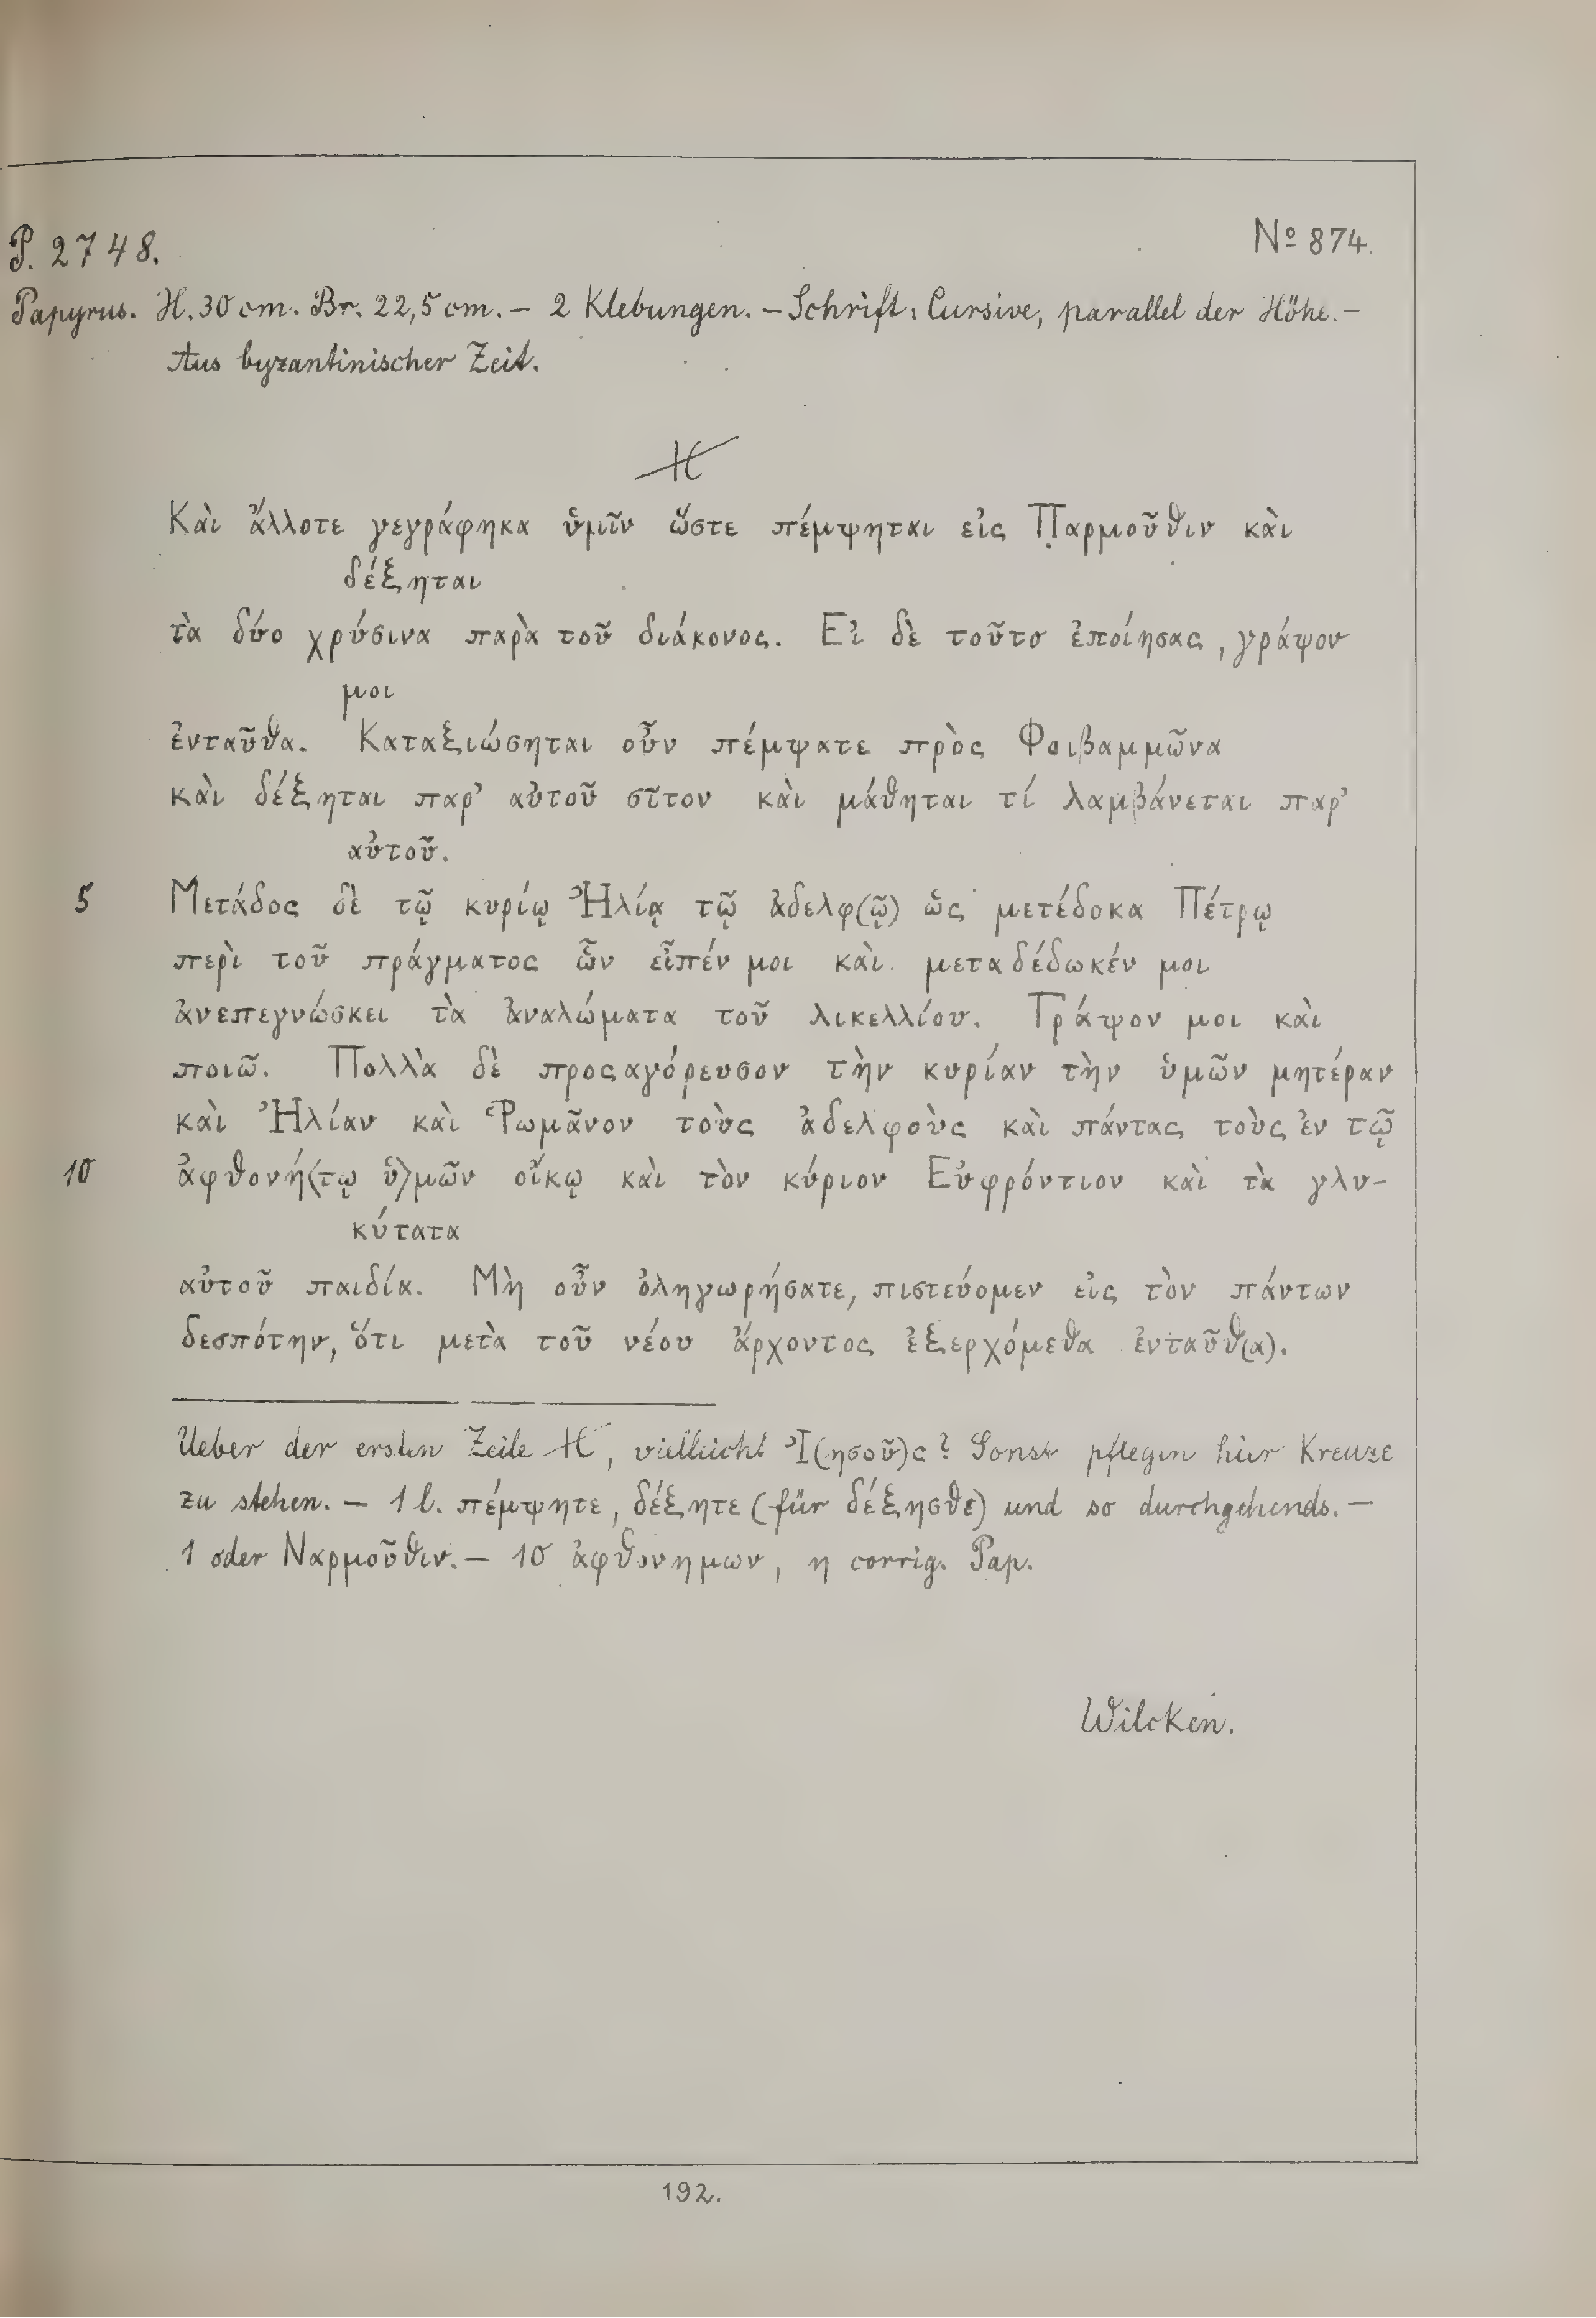 P. 2748.
№ 874.
Papyrus. H. 30 cm. Br. 22,5 cm. – 2 Klebungen. – Schrift: Cursive, parallel der Höhe. –
Aus byzantinischer Zeit.
Καὶ ἄλλοτε γεγράφηκα ὑμῖν ὥστε πέμψηται εἰς Π̣αρμοῦθιν καὶ
δέξηται
τὰ δύο χρύσινα παρὰ τοῦ διάκονος. Εἰ δὲ τοῦτο ἐποίησας, γράψον
μοι
ἐνταῦθα. Καταξιώσηται οὖν πέμψατε πρὸς Φοιβαμμῶνα
καὶ δέξηται παρ’ αὐτοῦ σῖτον καὶ μάθηται τί λαμβάνεται παρ’
αὐτοῦ.
5 Μετάδος δὲ τῷ κυρίῳ Ἠλίᾳ τῷ ἀδελφ(ῷ) ὡς μετέδοκα Πέτρῳ
περὶ τοῦ πράγματος ὧν εἶπέν μοι καὶ μεταδέδωκέν μοι
ἀνεπεγνώσκει τὰ ἀναλώματα τοῦ λικελλίου. Γράψον μοι καὶ
ποιῶ. Πολλὰ δὲ προςαγόρευσον τὴν κυρίαν τὴν ὑμῶν μητέραν
καὶ Ἠλίαν καὶ Ῥωμᾶνον τοὺς ἀδελφοὺς καὶ πάντας τοὺς ἐν τῷ
10 ἀφθονή⟨τῳ ὑ⟩μῶν οἴκῳ καὶ τὸν κύριον Εὐφρόντιον καὶ τὰ γλυ-
κύτατα
αὐτοῦ παιδία. Μὴ οὖν ὀληγωρήσατε, πιστεύομεν εἰς τὸν πάντων
δεσπότην, ὅτι μετὰ τοῦ νέου ἄρχοντος ἐξερχόμεθα ἐνταῦθ(α).
Ueber der ersten Zeile, vielleicht Ἰ(ησοῦ)ς? Sonst pflegen hier Kreuze
zu stehen. – 1 l. πέμψητε, δέξητε (für δέξησθε) und so durchgehends. –
1 oder Ναρμοῦθιν. – 10 ἀφθονημων, η corrig. Pap.
Wilcken.
192.